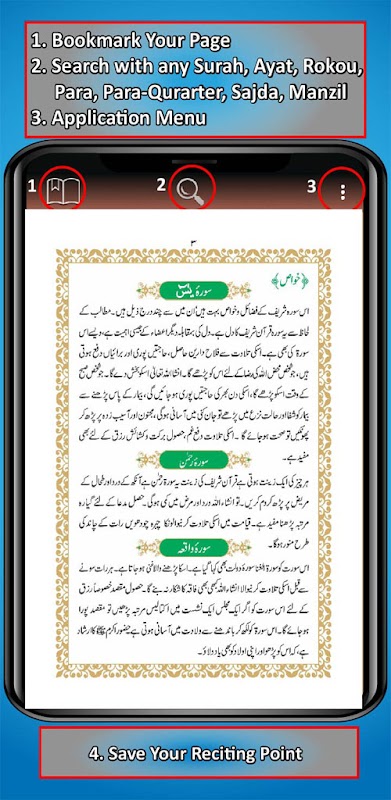 1. Bookmark Your Page
2. Search with any Surah, Ayat, Rokou,
Para, Para-Qurarter, Sajda, Manzil
3. Application Menu
1
2
3
۳
﴿خواص﴾
سورۂ یٰسٓ
اس سورہ شریف کے فضائل وخواص بہت ہیں اُن میں سے چند درج ذیل ہیں۔ مطالب کے
لحاظ سے یہ سورہ قرآن شریف کا دل ہے۔ دل کی بمقابلہ دیگر اعضاء کے جیسی اہمیت ہے، ویسے اس
سورۃ کی بھی ہے۔ اسکی تلاوت سے فلاح دارین حاصل، حاجتیں پوری اور برائیاں دفع ہوتی
ہیں، جو شخص محض اللہ کی رضا کے لئے اس کو پڑھے گا۔ انشاء اللہ تعالیٰ اسکو بخش دے گا۔ جو شخص صبح
کے وقت اسکو پڑھے گا، اسکی دن بھر کی حاجتیں پوری ہو جائیں گی، بیمار کے پاس پڑھنے سے
بیمار کو شفا اور حالت نزع میں پڑھے تو جان کنی میں آسانی ہوگی، مجنون اور آسیب زدہ پر پڑھ کر
پھونکیں تو صحت ہو جائے گا۔ اسکی تلاوت دفع غم، حصول برکت و کشائش رزق کے لئے بھی
مفید ہے۔
سورۂ رحمٰن
ہر چیز کی ایک زینت ہوتی ہے قرآن شریف کی زینت یہ سورۃ رحمٰن ہے آنکھ کے درد اور طحال کے
مریض پر پڑھ کر دم کریں۔ تو انشاء اللہ درد اور مرض میں کمی ہوگی۔ حصول مدعا کے لئے گیارہ
مرتبہ پڑھنا مفید ہے۔ قیامت میں اسکی تلاوت کرنیوالونکا چہرہ چودھویں رات کے چاند کی
طرح منور ہوگا۔
سورۂ واقعہ
اس سورت کو سورۃ الغنا سورۃ دولت بھی کہا گیا ہے۔ اسکا پڑھنے والا غنی ہو جاتا ہے۔ ہر رات سونے
سے قبل اسکی تلاوت کرنیوالا انشاء اللہ کبھی بھی فاقہ کا شکار نہ بنے گا۔ حصول مقصد خصوصاً رزق
کے لئے اس سورت کو اگر ایک مجلس ایک نشست میں اکتالیس مرتبہ پڑھیں تو مقصد پورا
ہو جائے گا۔ اس سورۃ کو لکھ کر باندھنے سے ولادت میں آسانی ہوتی ہے حضور اکرم ﷺ کا ارشاد
ہے، کہ اس کو پڑھو اور اپنی اولاد کو بھی یاد دلاؤ۔
4. Save Your Reciting Point